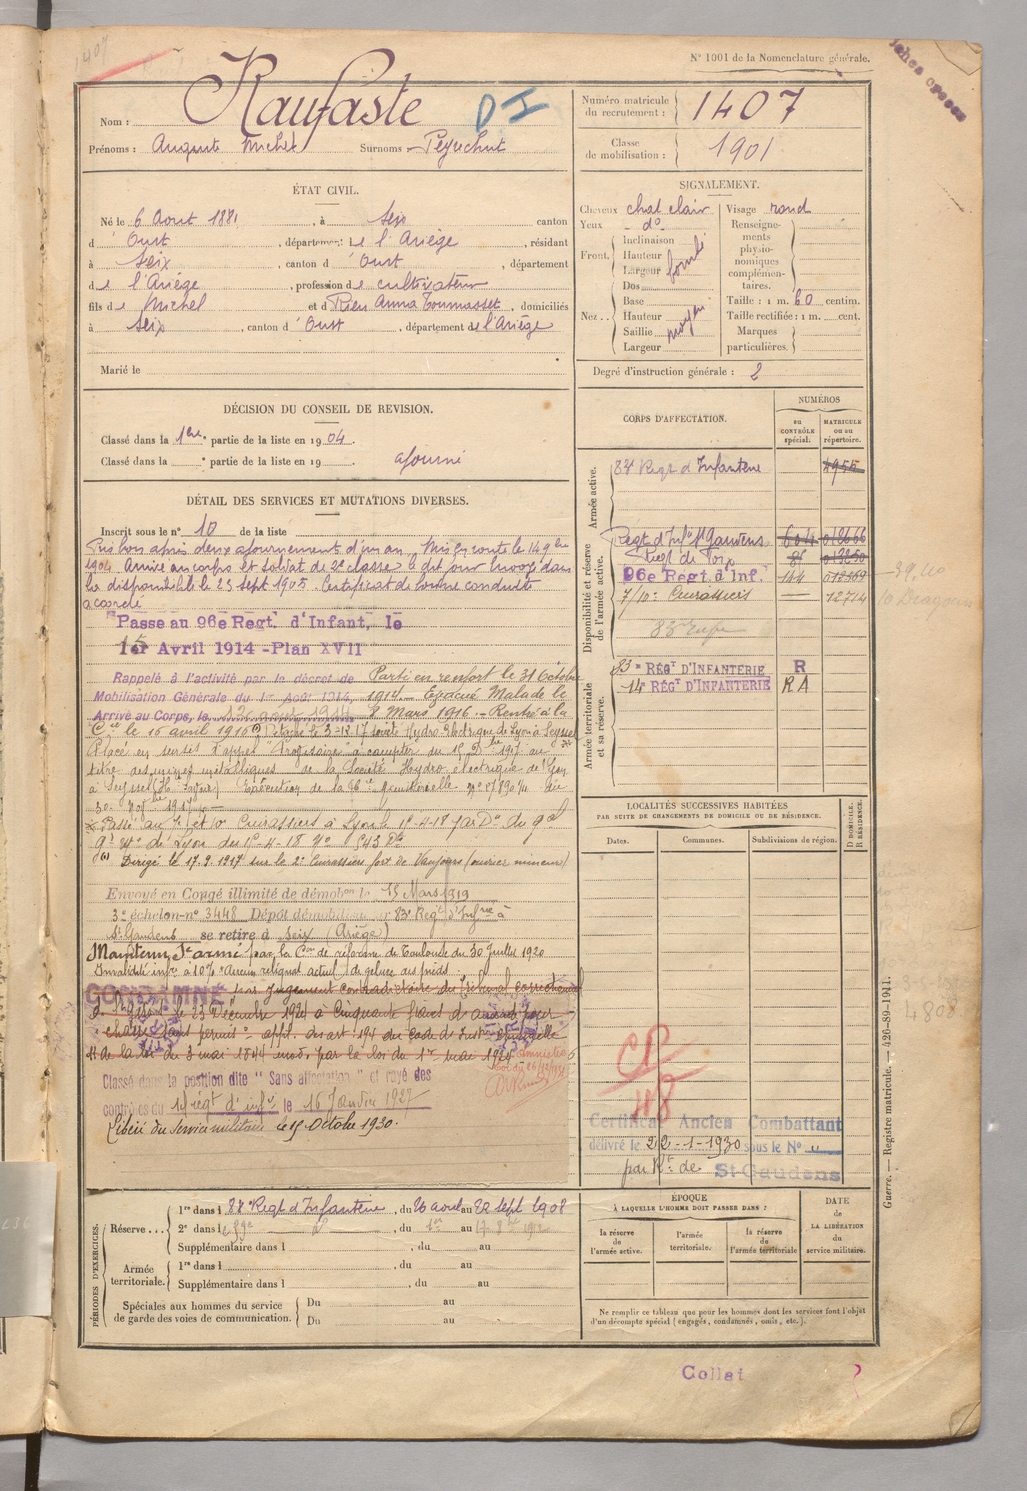 1407
N° 1001 de la Nomenclature générale.
Nom : Raufaste
DI
Prénoms : Auguste Michel Surnoms Peyuchut
Numéro matricule du recrutement : 1407
Classe de mobilisation : 1901
ÉTAT CIVIL.
Né le 6 Aout 1881, à Seix canton
d' Oust, département de l'Ariège, résidant
à Seix, canton d' Oust, département
de l'Ariège, profession de cultivateur
fils de Michel et d Rieu Anna Toumasset, domiciliés
à Seix, canton d' Oust, département de l'Ariège
Marié le
SIGNALEMENT.
Cheveux chat clair
Yeux d°
Front. Inclinaison
Hauteur
Largeur
Nez .. Dos
Base
Hauteur
Saillie moyen
Largeur
Visage rond
Renseignements physionomiques complémentaires.
Taille : 1 m. 60 centim.
Taille rectifiée : 1 m. cent.
Marques particulières.
Degré d'instruction générale : 2
DÉCISION DU CONSEIL DE REVISION.
Classé dans la 1ère partie de la liste en 1904.
Classé dans la partie de la liste en 19 . ajourné
DÉTAIL DES SERVICES ET MUTATIONS DIVERSES.
Inscrit sous le n° 10 de la liste
Pris bon après deux ajournements d'un an. Mis en route le 14 9bre
1904. Arrivé au corps et soldat de 2e classe le dit jour. Envoyé dans
la disponibilité le 23 sept 1905. Certificat de bonne conduite
accordé
Passé au 96e Regt. d'Infant, le
15 Avril 1914 - Plan XVII
Rappelé à l'activité par le décret de
Mobilisation Générale du 1er Août 1914,
Arrivé au Corps, le 12 août 1914
Parti en renfort le 31 Octobre
1914. Evacué Malade le
8 Mars 1916. Rentré à la
Cie le 16 avril 1916
Placé en sursis d'appel
titre des mines métalliques de la Société Hydro électrique de Lyon
à Seyssel
Passé au 10e Cuirassiers à Lyon le 1er-4-18 par Don du gal
Dirigé le 17.9.1917 sur le 2e Cuirassiers fort de Vaujours (ouvrier mineur)
Envoyé en Congé illimité de démobon le 15 Mars 1919
3e échelon n° 3448 Dépôt démobilisateur 83e Regt d'Infrie à
St Gaudens se retire à Seix (Ariège)
Maintenu St armé par la Con de réforme de Toulouse du 30 Juillet 1920
Invalidité infre à 10% Aucun reliquat actuel de gelure des pieds.
CONDAMNÉ par Jugement contradictoire du Tribunal correctionnel
de St Girons le 23 Décembre 1924 à Cinquante francs d'amende pour
"chasse sans permis" appl. des art. 194 du Code d'Inston Criminelle
11 de la loi du 3 mai 1844 mod. par la loi du 1er mai 1924
Classé dans la position dite "Sans affectation" et rayé des
contrôles du 14 régt d'infie le 16 Janvier 1927
Libéré du Service militaire le 15 Octobre 1930.
CORPS D'AFFECTATION.
NUMÉROS
au CONTRÔLE spécial.
MATRICULE ou au répertoire.
Armée active.
83e Regt d'Infanterie
Disponibilité et réserve de l'armée active.
Regt d'Infie St Gaudens 604 012666
Regt de Foix 86
96e Régt d'Inf. 144
7/10e Cuirassiers — 12714
Armée territoriale et sa réserve.
83e RÉGT D'INFANTERIE R
14e RÉGT D'INFANTERIE RA
LOCALITÉS SUCCESSIVES HABITÉES
PAR SUITE DE CHANGEMENTS DE DOMICILE OU DE RÉSIDENCE.
D DOMICILE. R RÉSIDENCE.
Dates. Communes. Subdivisions de région.
Certificat Ancien Combattant
délivré le 22-1-1930 sous le N° "
par Rt de St-Gaudens
PÉRIODES D'EXERCICES.
Réserve ... 1re dans l 88e Regt d'Infanterie, du 26 aout au 22 sept 1908
2e dans l
Supplémentaire dans l , du au
Armée territoriale. 1re dans l , du au
Supplémentaire dans l , du au
Spéciales aux hommes du service de garde des voies de communication. Du au
Du au
ÉPOQUE
À LAQUELLE L'HOMME DOIT PASSER DANS :
la réserve de l'armée active.
l'armée territoriale.
la réserve de l'armée territoriale
DATE de LA LIBÉRATION du service militaire.
Ne remplir ce tableau que pour les hommes dont les services font l'objet
d'un décompte spécial (engagés, condamnés, omis, etc.).
Guerre. — Registre matricule. — 426-89-1911.
4808
Collat